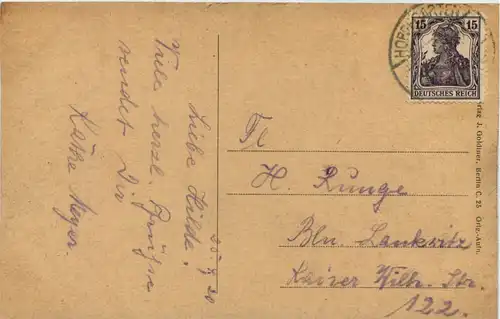 25.4.20
Liebe Hilda!
Viele herzl. Grüße
sendet Dir
Käthe Meyer.
Fl
H. Runge
Bln. Lankwitz
Kaiser Wilh. Str.
122.
15 15
DEUTSCHES REICH
J. Goldiner, Berlin C. 25 Orig.-Aufn.